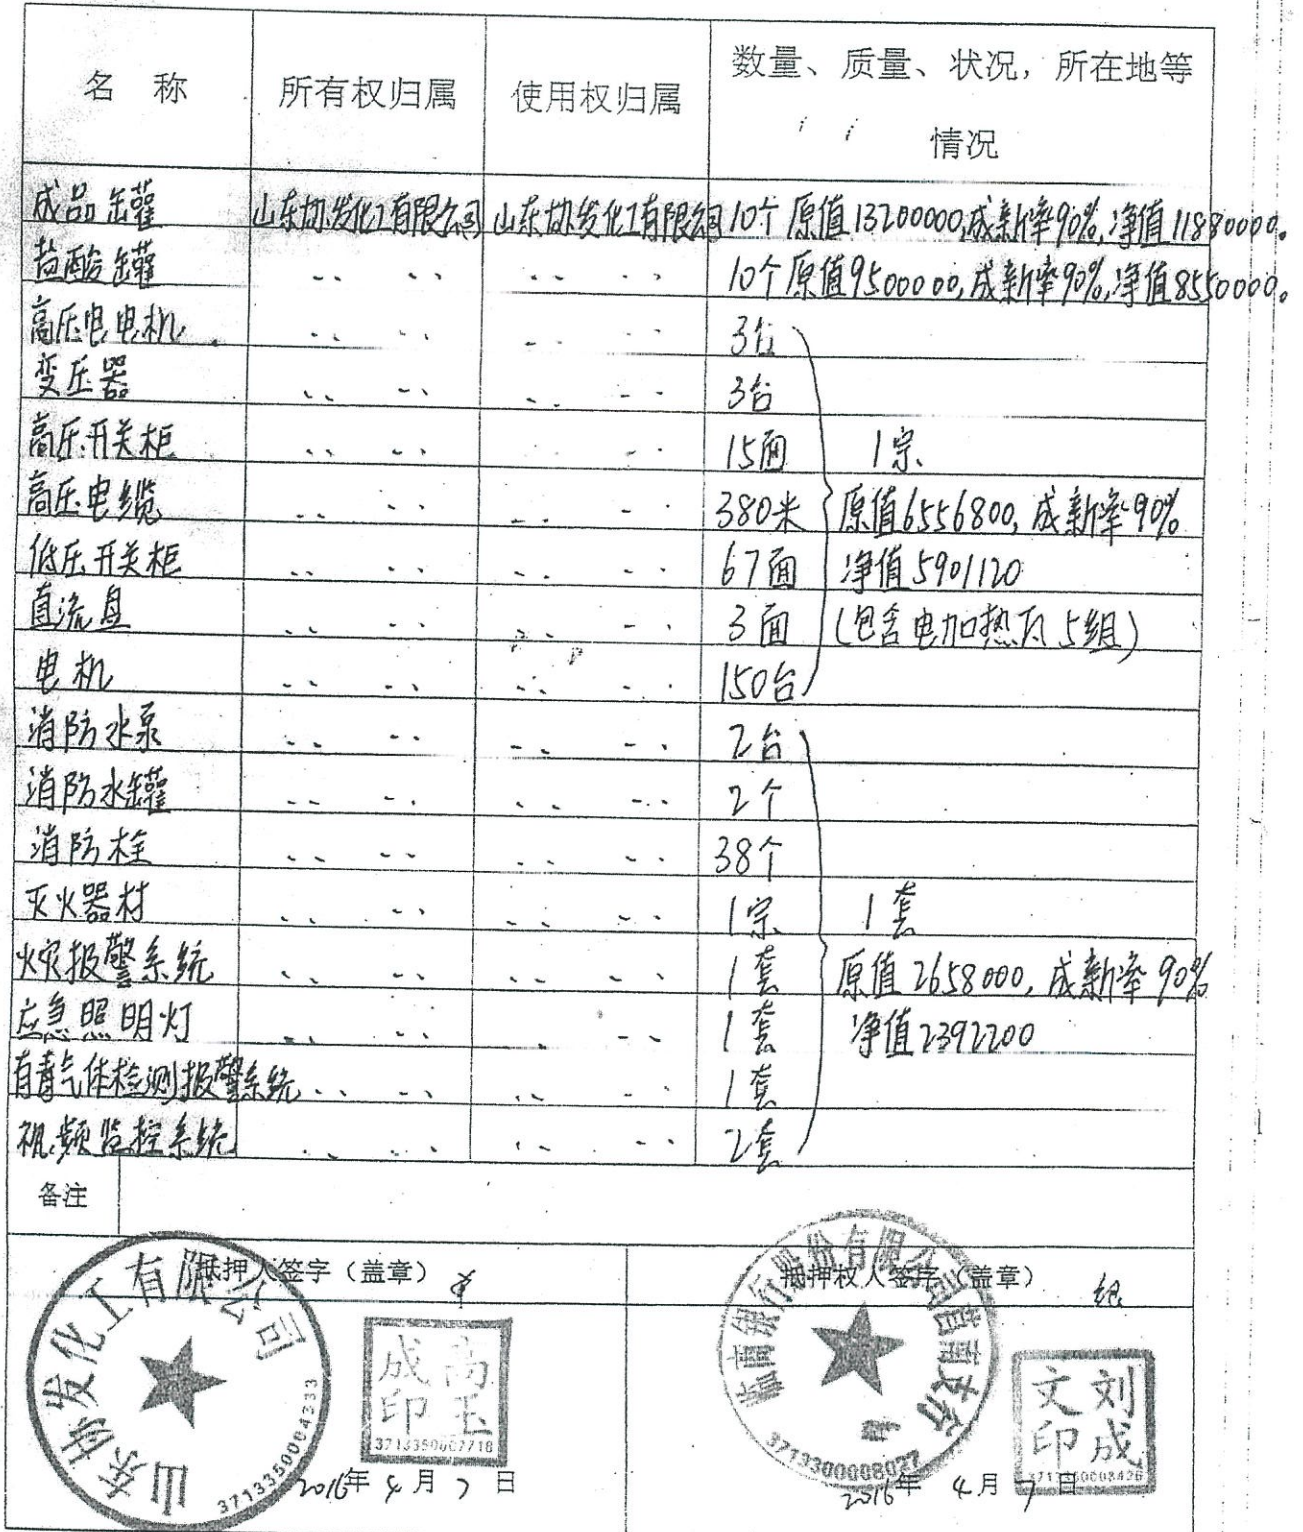 名 称 所有权归属 使用权归属 数量、质量、状况，所在地等
情况
成品罐 山东协发化工有限公司 山东协发化工有限公司 10个 原值13200000,成新率90%,净值11880000。
盐酸罐 〃 〃 〃 〃 10个 原值9500000,成新率90%,净值8550000。
高压电电机 〃 〃 〃 〃 3台
变压器 〃 〃 〃 〃 3台
高压开关柜 〃 〃 〃 〃 15面 1宗
高压电缆 〃 〃 〃 〃 380米 原值6556800, 成新率90%
低压开关柜 〃 〃 〃 〃 67面 净值5901120
直流盘 〃 〃 〃 〃 3面 (包含电加热 5组)
电机 〃 〃 〃 〃 150台
消防水泵 〃 〃 〃 〃 2台
消防水罐 〃 〃 〃 〃 2个
消防栓 〃 〃 〃 〃 38个
灭火器材 〃 〃 〃 〃 1宗 1套
火灾报警系统 〃 〃 〃 〃 1套 原值2658000, 成新率90%
应急照明灯 〃 〃 〃 〃 1套 净值2392200
有毒气体检测报警系统 〃 〃 〃 〃 1套
视频监控系统 〃 〃 〃 〃 2套
备注
抵押人签字（盖章） 抵押权人签字（盖章）
山东协发化工有限公司
3713350004333
高玉成印
3713350007718
2016年4月7日
临商银行股份有限公司莒南支行
3713300008027
刘成文印
2016年 4月 7日